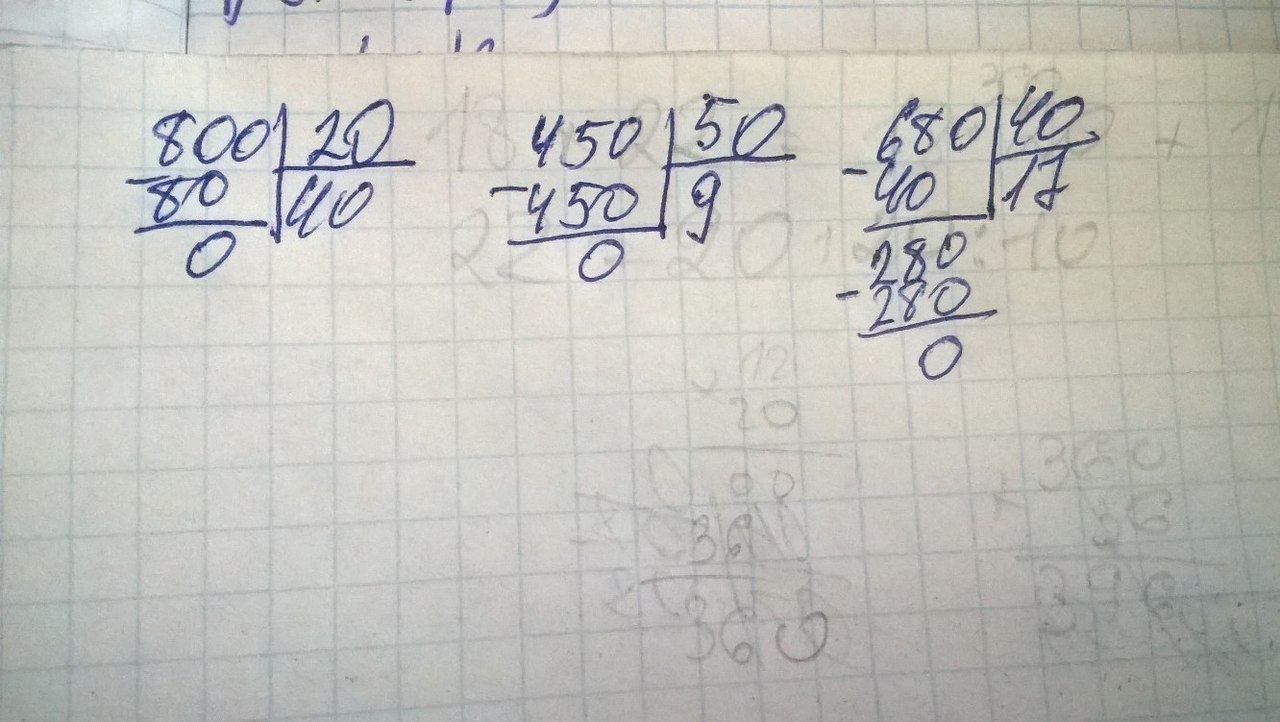 800 20
-80 40
0
450 50
-450 9
0
680 40
-40 17
280
-280
0
12
20
36
360